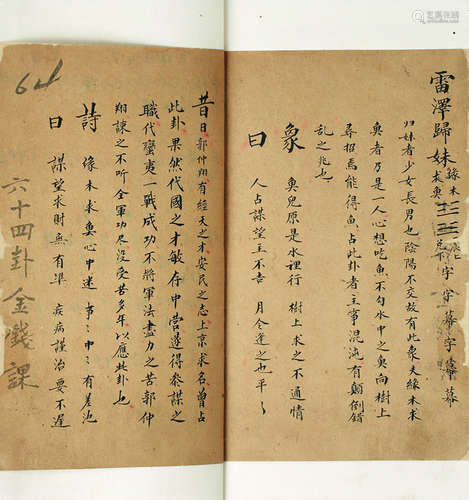 雷澤歸妹 緣木求魚
字字幕字幕幕
归妹者少女長男也陰陽不交故有此象夫緣木求
魚者乃是一人心想吃魚不勾水中之魚向樹上
尋招焉能得魚占此卦者主事混沌有顛倒错
乱之兆也
象 魚兒原是水裡行 樹上求之不通情
曰 人占謀望主不吉 月令逢之也平々
昔日郭仲翔有經天之才安民之志上京求名曾占
此卦果然代國之才敏存中营遂得叅謀之
職代蛮夷一戰成功不將軍法盡力之苦郭仲
翔諫之不听全軍功尽没受苦多年以應此卦也
詩 緣木求魚心中迷 事々中々有差池
曰 謀望求財無有準 疾病謹治要不遲
64
六十四卦金錢課